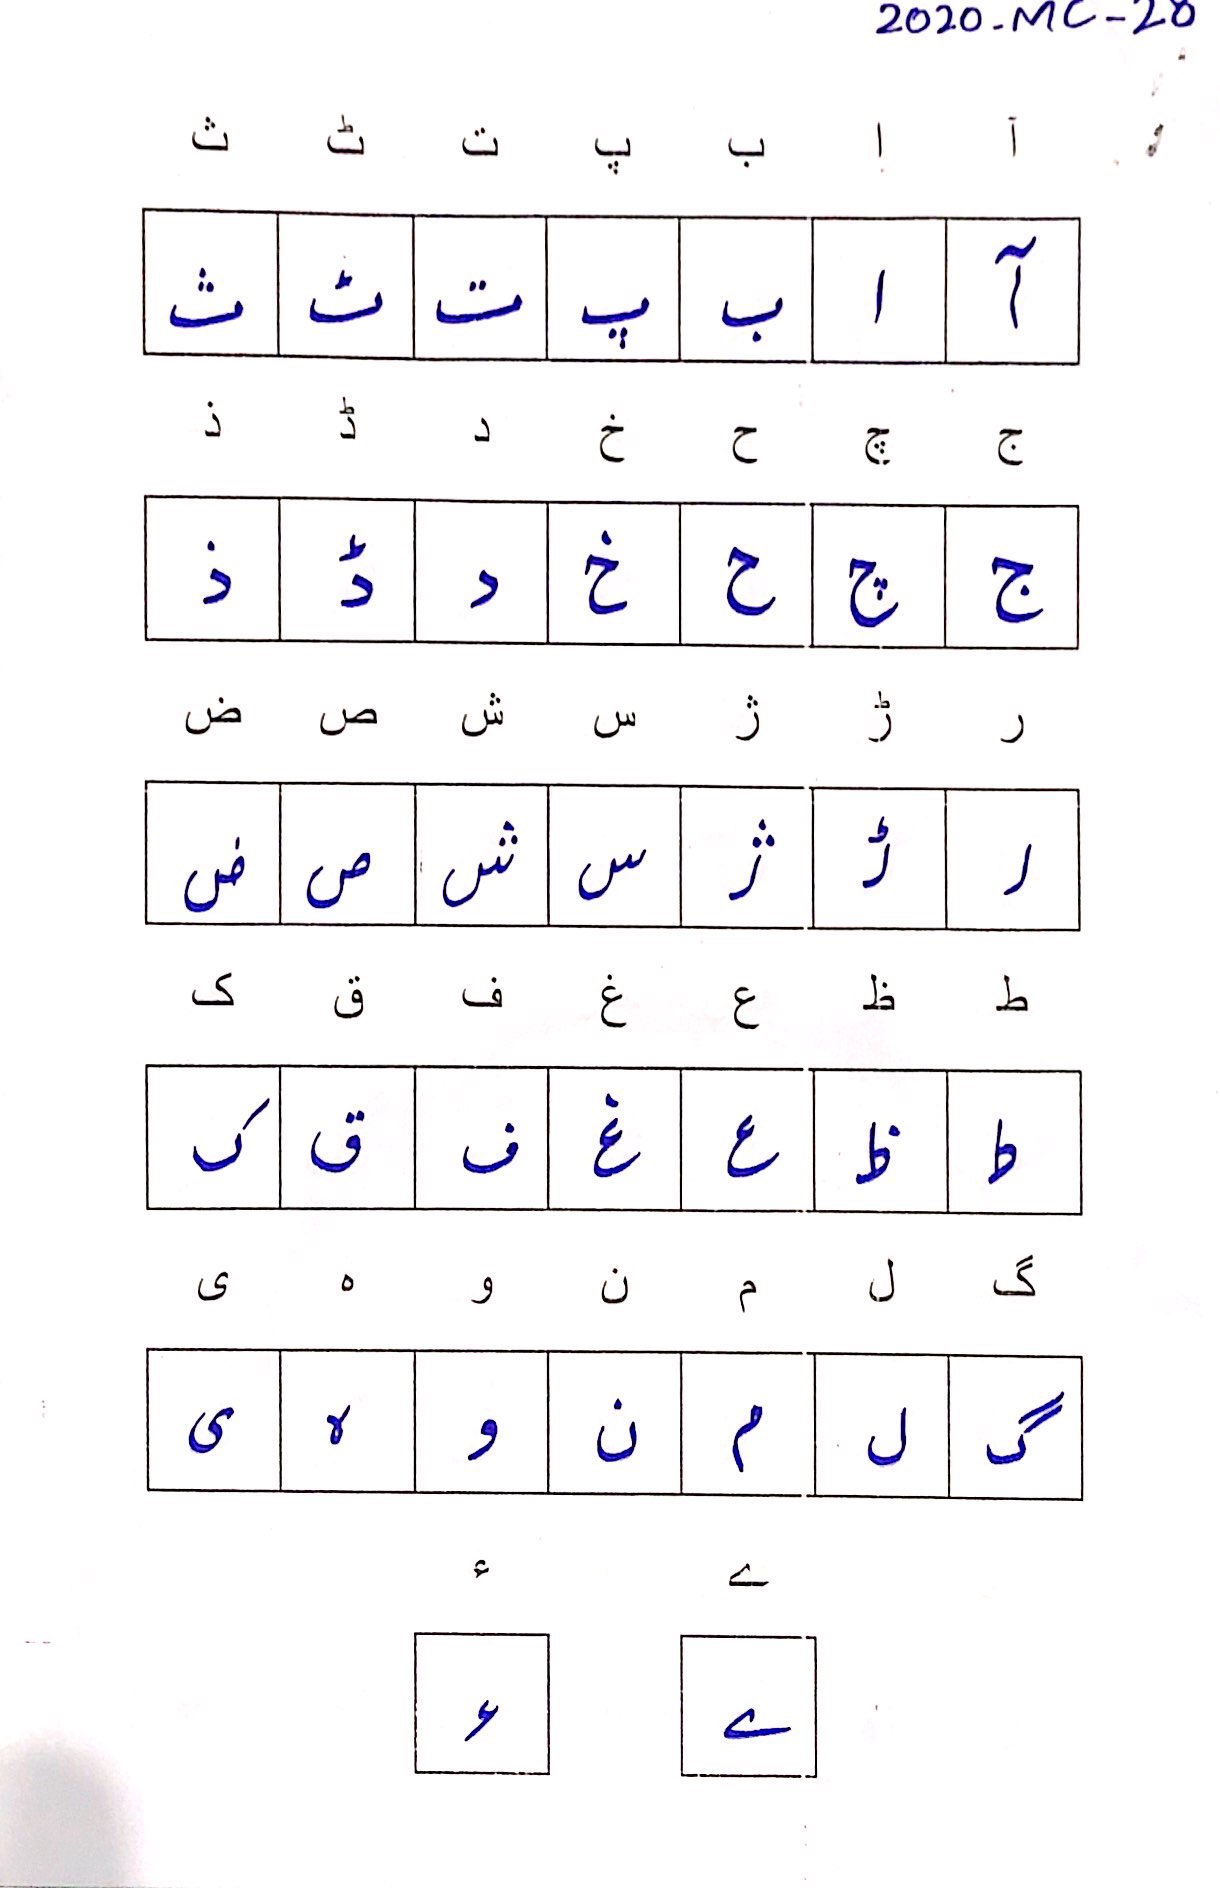 2020-MC-28
آ ا ب پ ت ٹ ث
آ ا ب پ ت ٹ ث
ج چ ح خ د ڈ ذ
ج چ ح خ د ڈ ذ
ر ڑ ژ س ش ص ض
ر ڑ ژ س ش ص ض
ط ظ ع غ ف ق ک
ط ظ ع غ ف ق ک
گ ل م ن و ہ ی
گ ل م ن و ہ ی
ے ء
ے ء